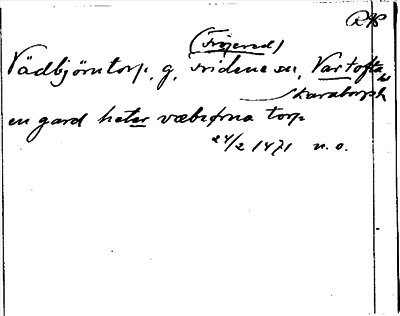 RAP
(Fröjered)
Vädbjörntorp, g, Fridene sn, Vartofta hd
Skaraborgs l.
en gard heter væbiørna torp
24/2 1471 n. o.